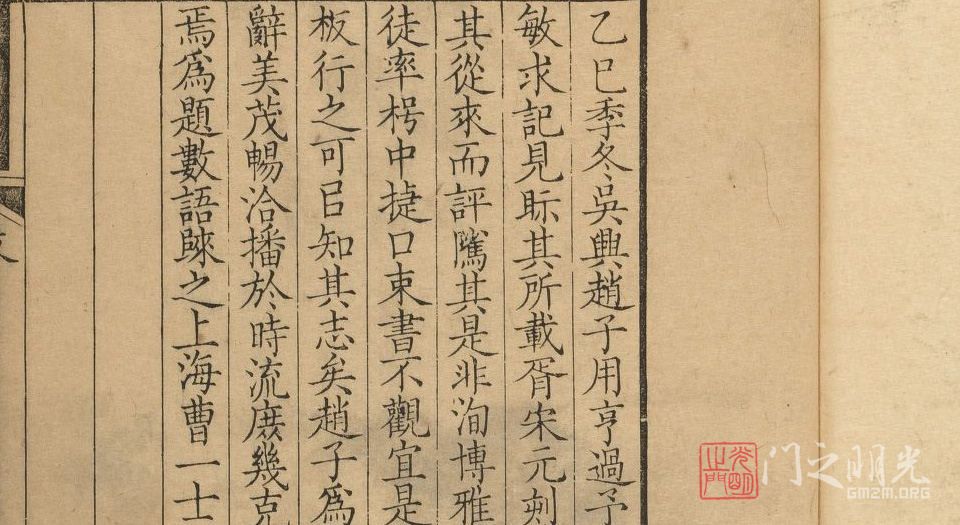 乙巳季冬吳興趙子用亨過予
敏求記見眎其所載胥宋元刻
其從來而評隲其是非洵博雅
徒率枵中捷口束書不觀宜是
板行之可㠯知其志矣趙子為
辭美茂暢洽播於時流庶幾克
焉爲題數語歸之上海曹一士
门之明光
GMZM.ORG